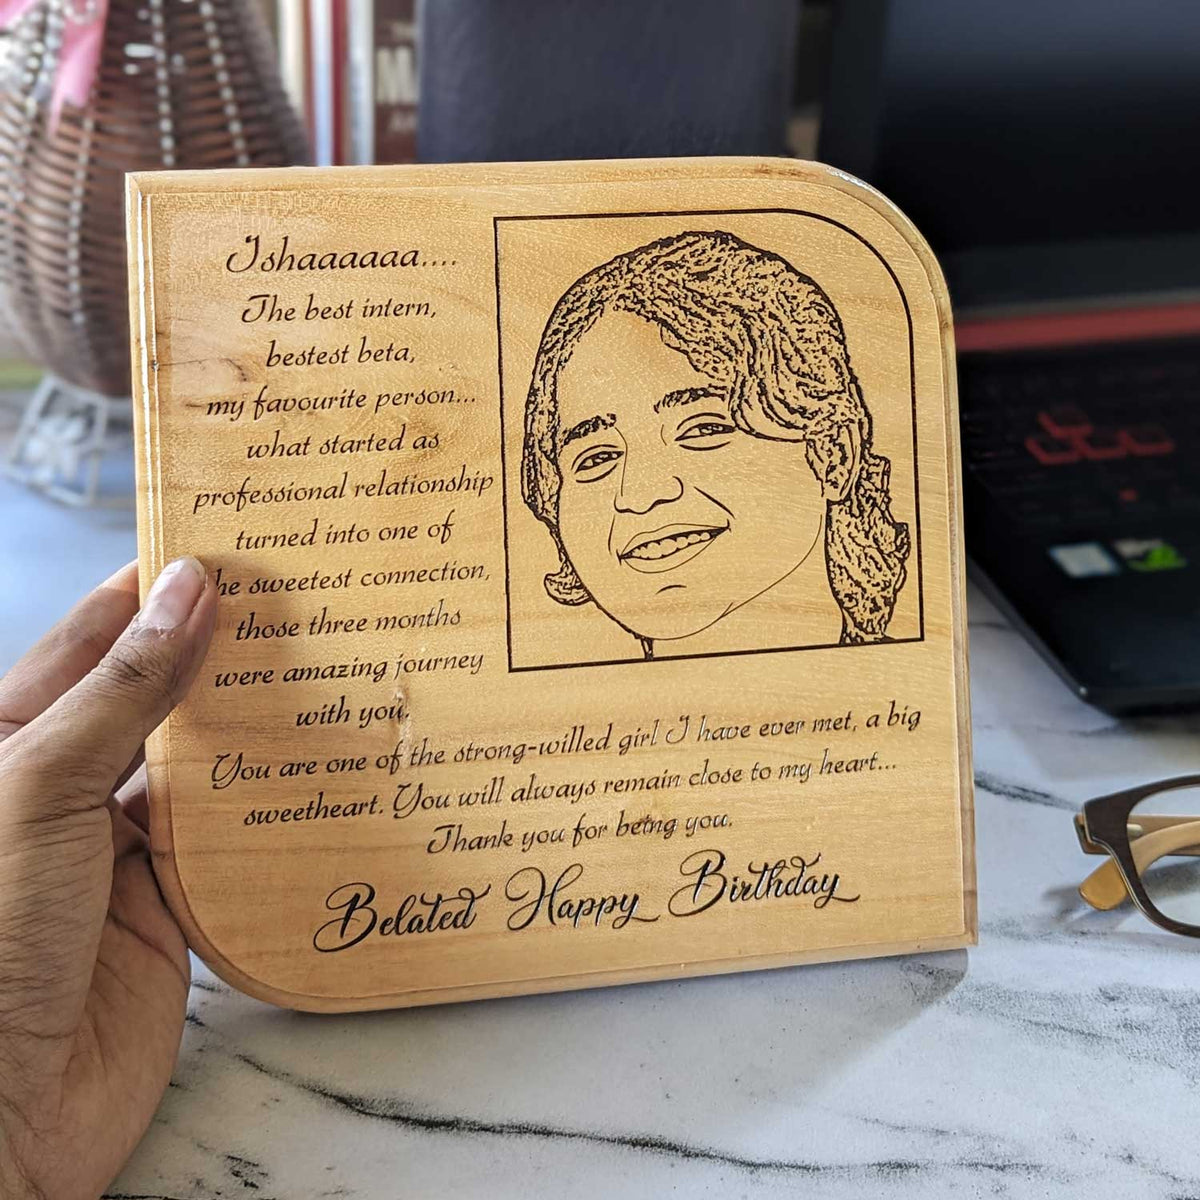 Ishaaaaaa....
The best intern,
bestest beta,
my favourite person...
what started as
professional relationship
turned into one of
he sweetest connection,
those three months
were amazing journey
with you.
You are one of the strong-willed girl I have ever met, a big
sweetheart. You will always remain close to my heart...
Thank you for being you.
Belated Happy Birthday